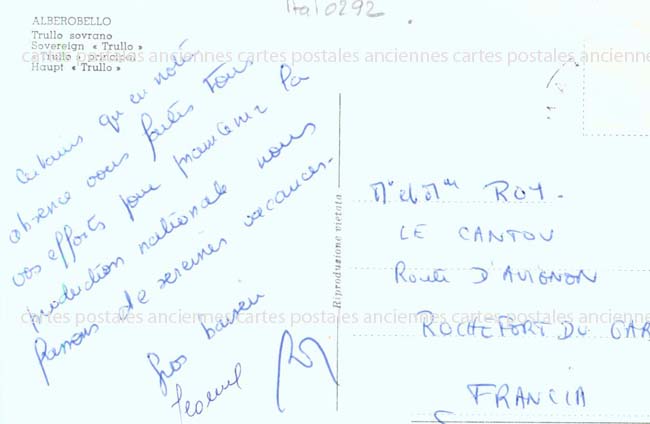 Ital0292
ALBEROBELLO
Trullo sovrano
Sovereign « Trullo »
Trullo principal
Haupt « Trullo »
cartes postales anciennes cartes postales anciennes cartes postales anciennes
Certains qu'en notre
absence vous faites tous
vos efforts pour maintenir la
production nationale nous
passons de sereines vacances.
Gros baisers
Riproduzione vietata
Mr et Mme ROY.
LE CANTOU
Route D'AVIGNON
ROCHEFORT DU GAR
FRANCIA
cartes postales anciennes cartes postales anciennes cartes postales anciennes